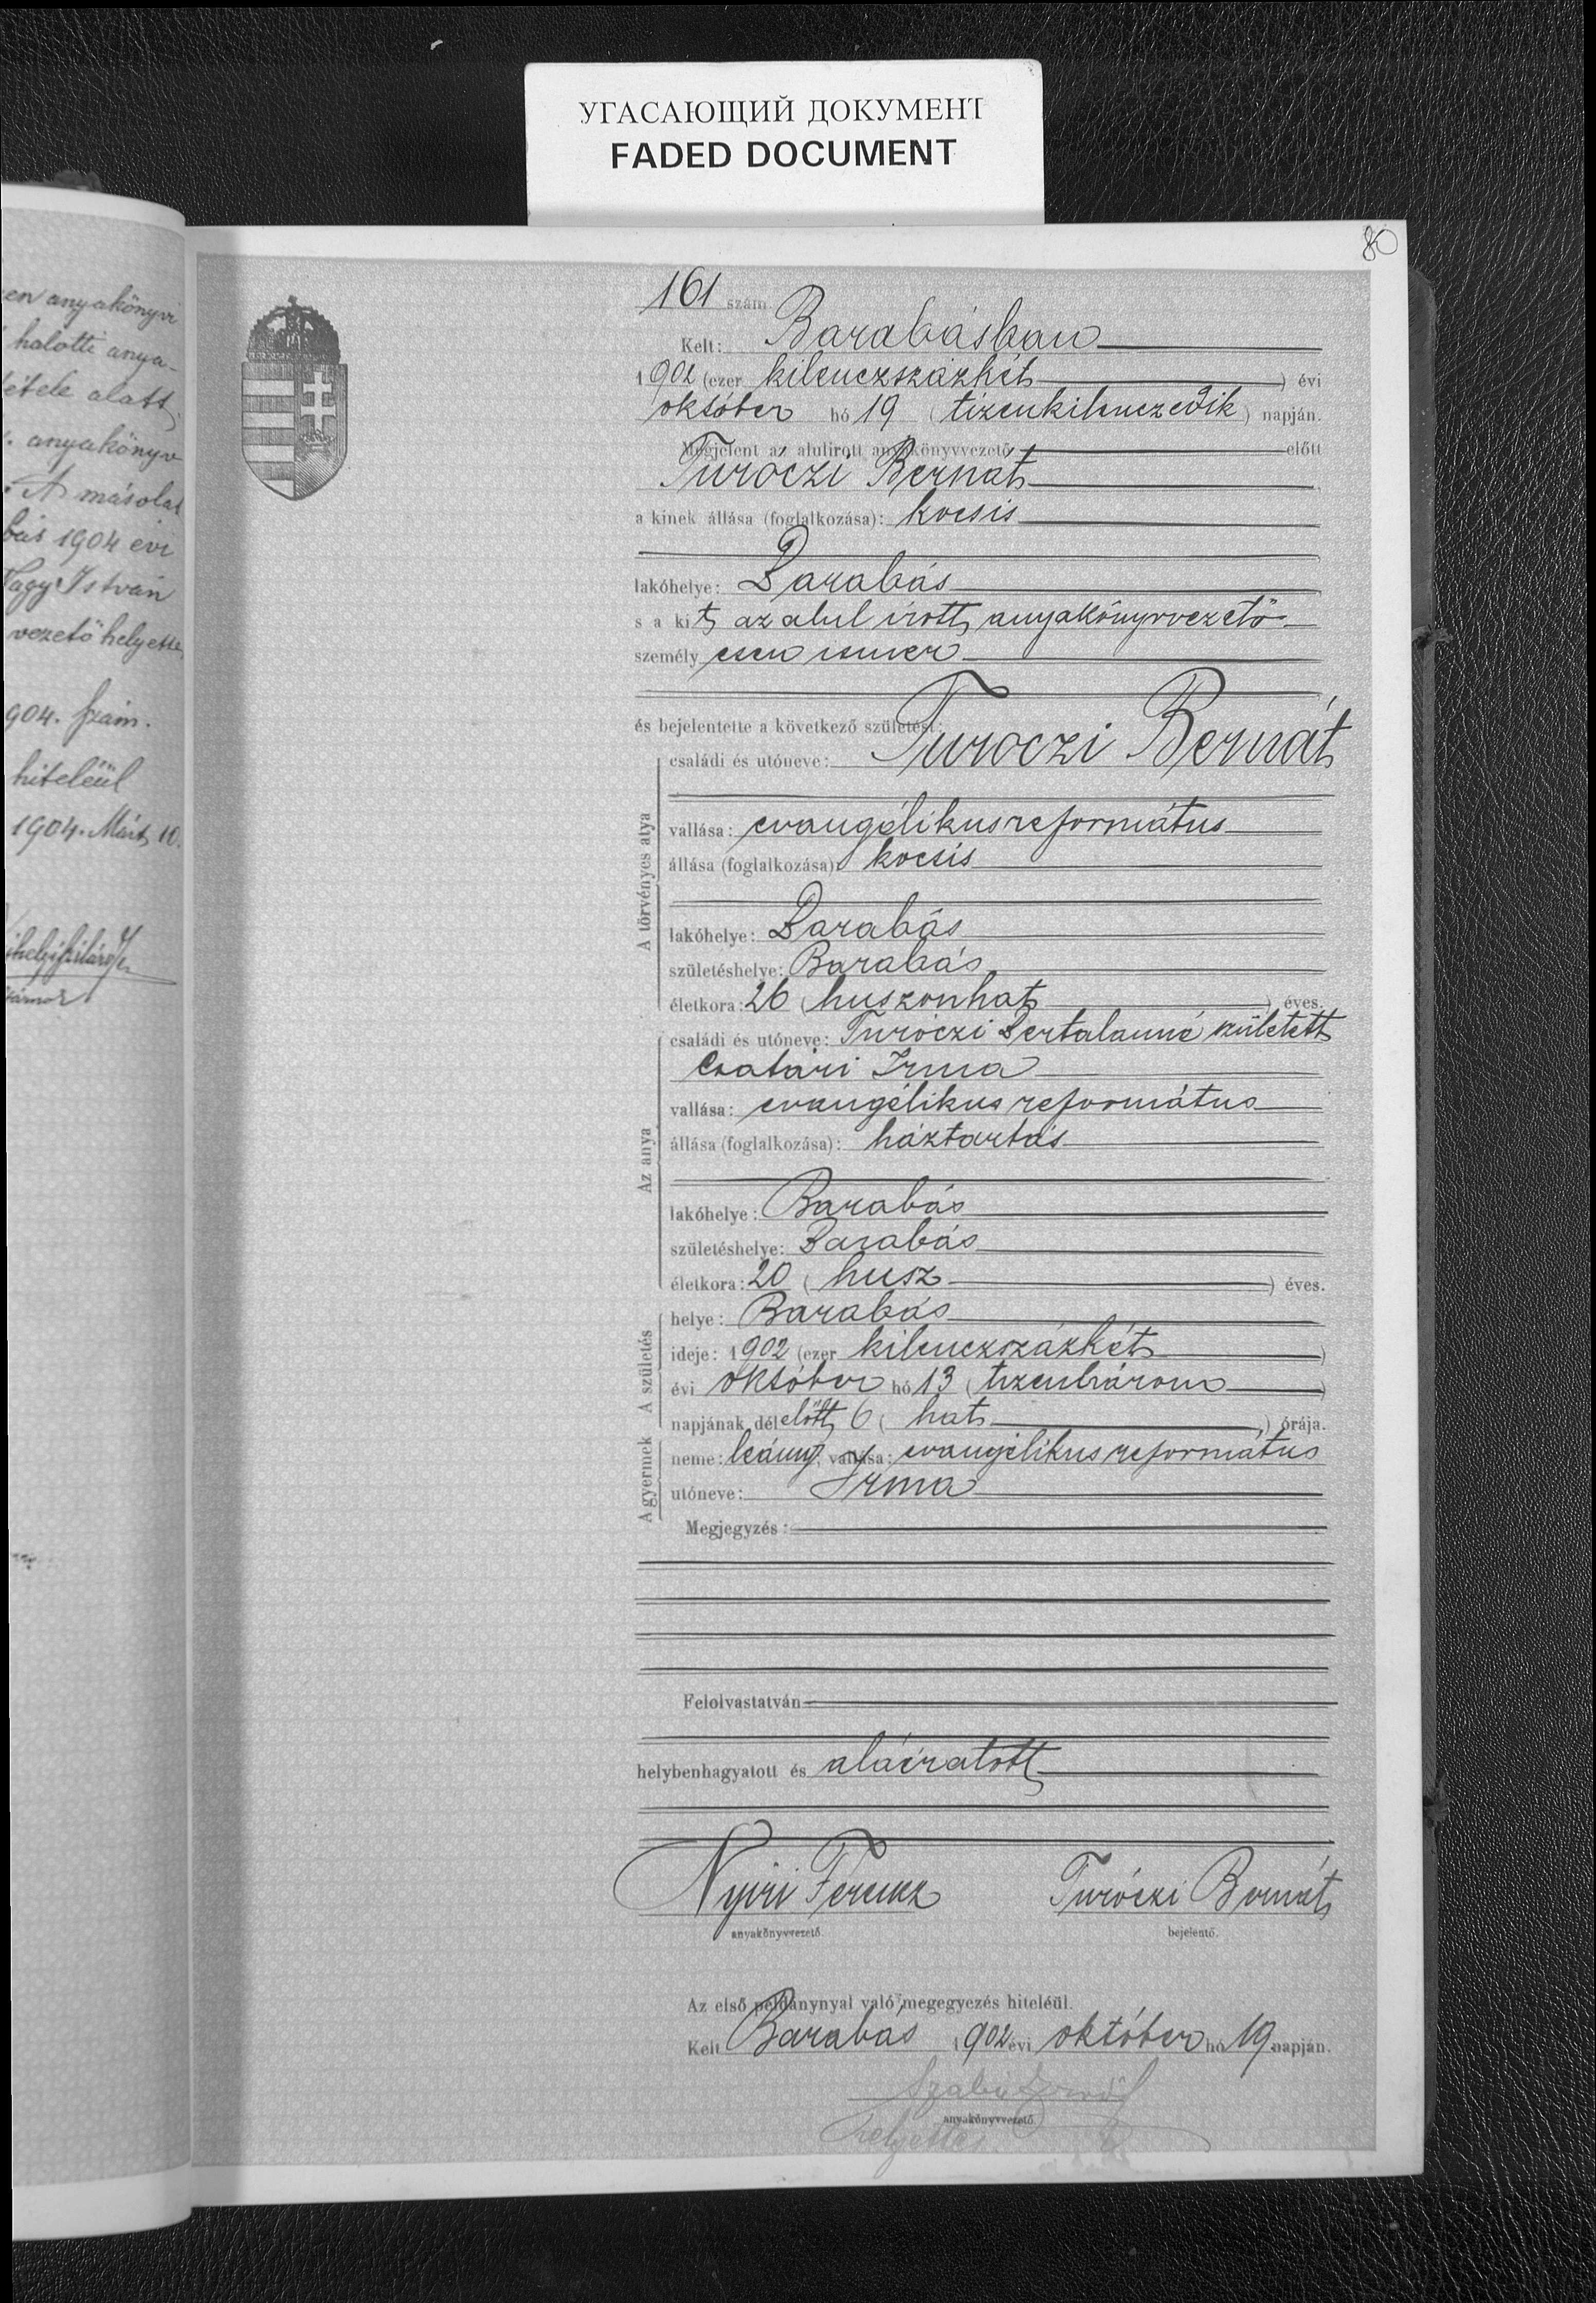 УГАСАЮЩИЙ ДОКУМЕНТ
FADED DOCUMENT
80
en anyakönyvi
halotti anya-
tétele alatt
anyakönyv
A másolat
bás 1904 évi
Nagy István
vezető helyettes
904. szám.
hiteléül
1904. Márt 10.
161 szám
Kelt: Barabásban
1902 (ezer kilenczszázkét) évi
október hó 19 (tizenkilenczedik) napján.
Megjelent az alulirott anyakönyvvezető előtt
Turoczi Bernát
a kinek állása (foglalkozása): kocsis
lakóhelye: Barabás
s a kit az alul irott anyakönyvvezető
személyesen ismer
és bejelentette a következő születést:
A törvényes atya
családi és utóneve: Turoczi Bernát
vallása: evangélikus református
állása (foglalkozása): kocsis
lakóhelye: Barabás
születéshelye: Barabás
életkora: 26 (huszonhat) éves.
Az anya
családi és utóneve: Turóczi Bertalanné született
Csatári Irma
vallása: evangélikus református
állása (foglalkozása): háztartás
lakóhelye: Barabás
születéshelye: Barabás
életkora: 20 (husz) éves.
A születés
helye: Barabás
ideje: 1902 (ezer kilenczszázkét)
évi október hó 13 (tizenhárom)
napjának délelőtt 6 (hat) órája.
A gyermek
neme: leány, vallása: evangélikus református
utóneve: Irma
Megjegyzés:
Felolvastatván
helybenhagyatott és aláiratott
Nyiri Ferencz Turóczi Bernát
anyakönyvvezető. bejelentő.
Az első példánynyal való megegyezés hiteléül.
Kelt Barabás 1902 évi október hó 19 napján.
Szabó
anyakönyvvezető
helyettes